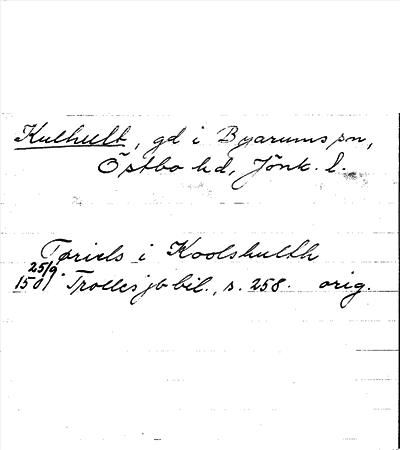 Kulhult, gd i Byarums sn,
Östbo hd, Jönk. l.
Toriels i Koolshulth
25/9
1501 Trolles jbbil., s. 258. orig.